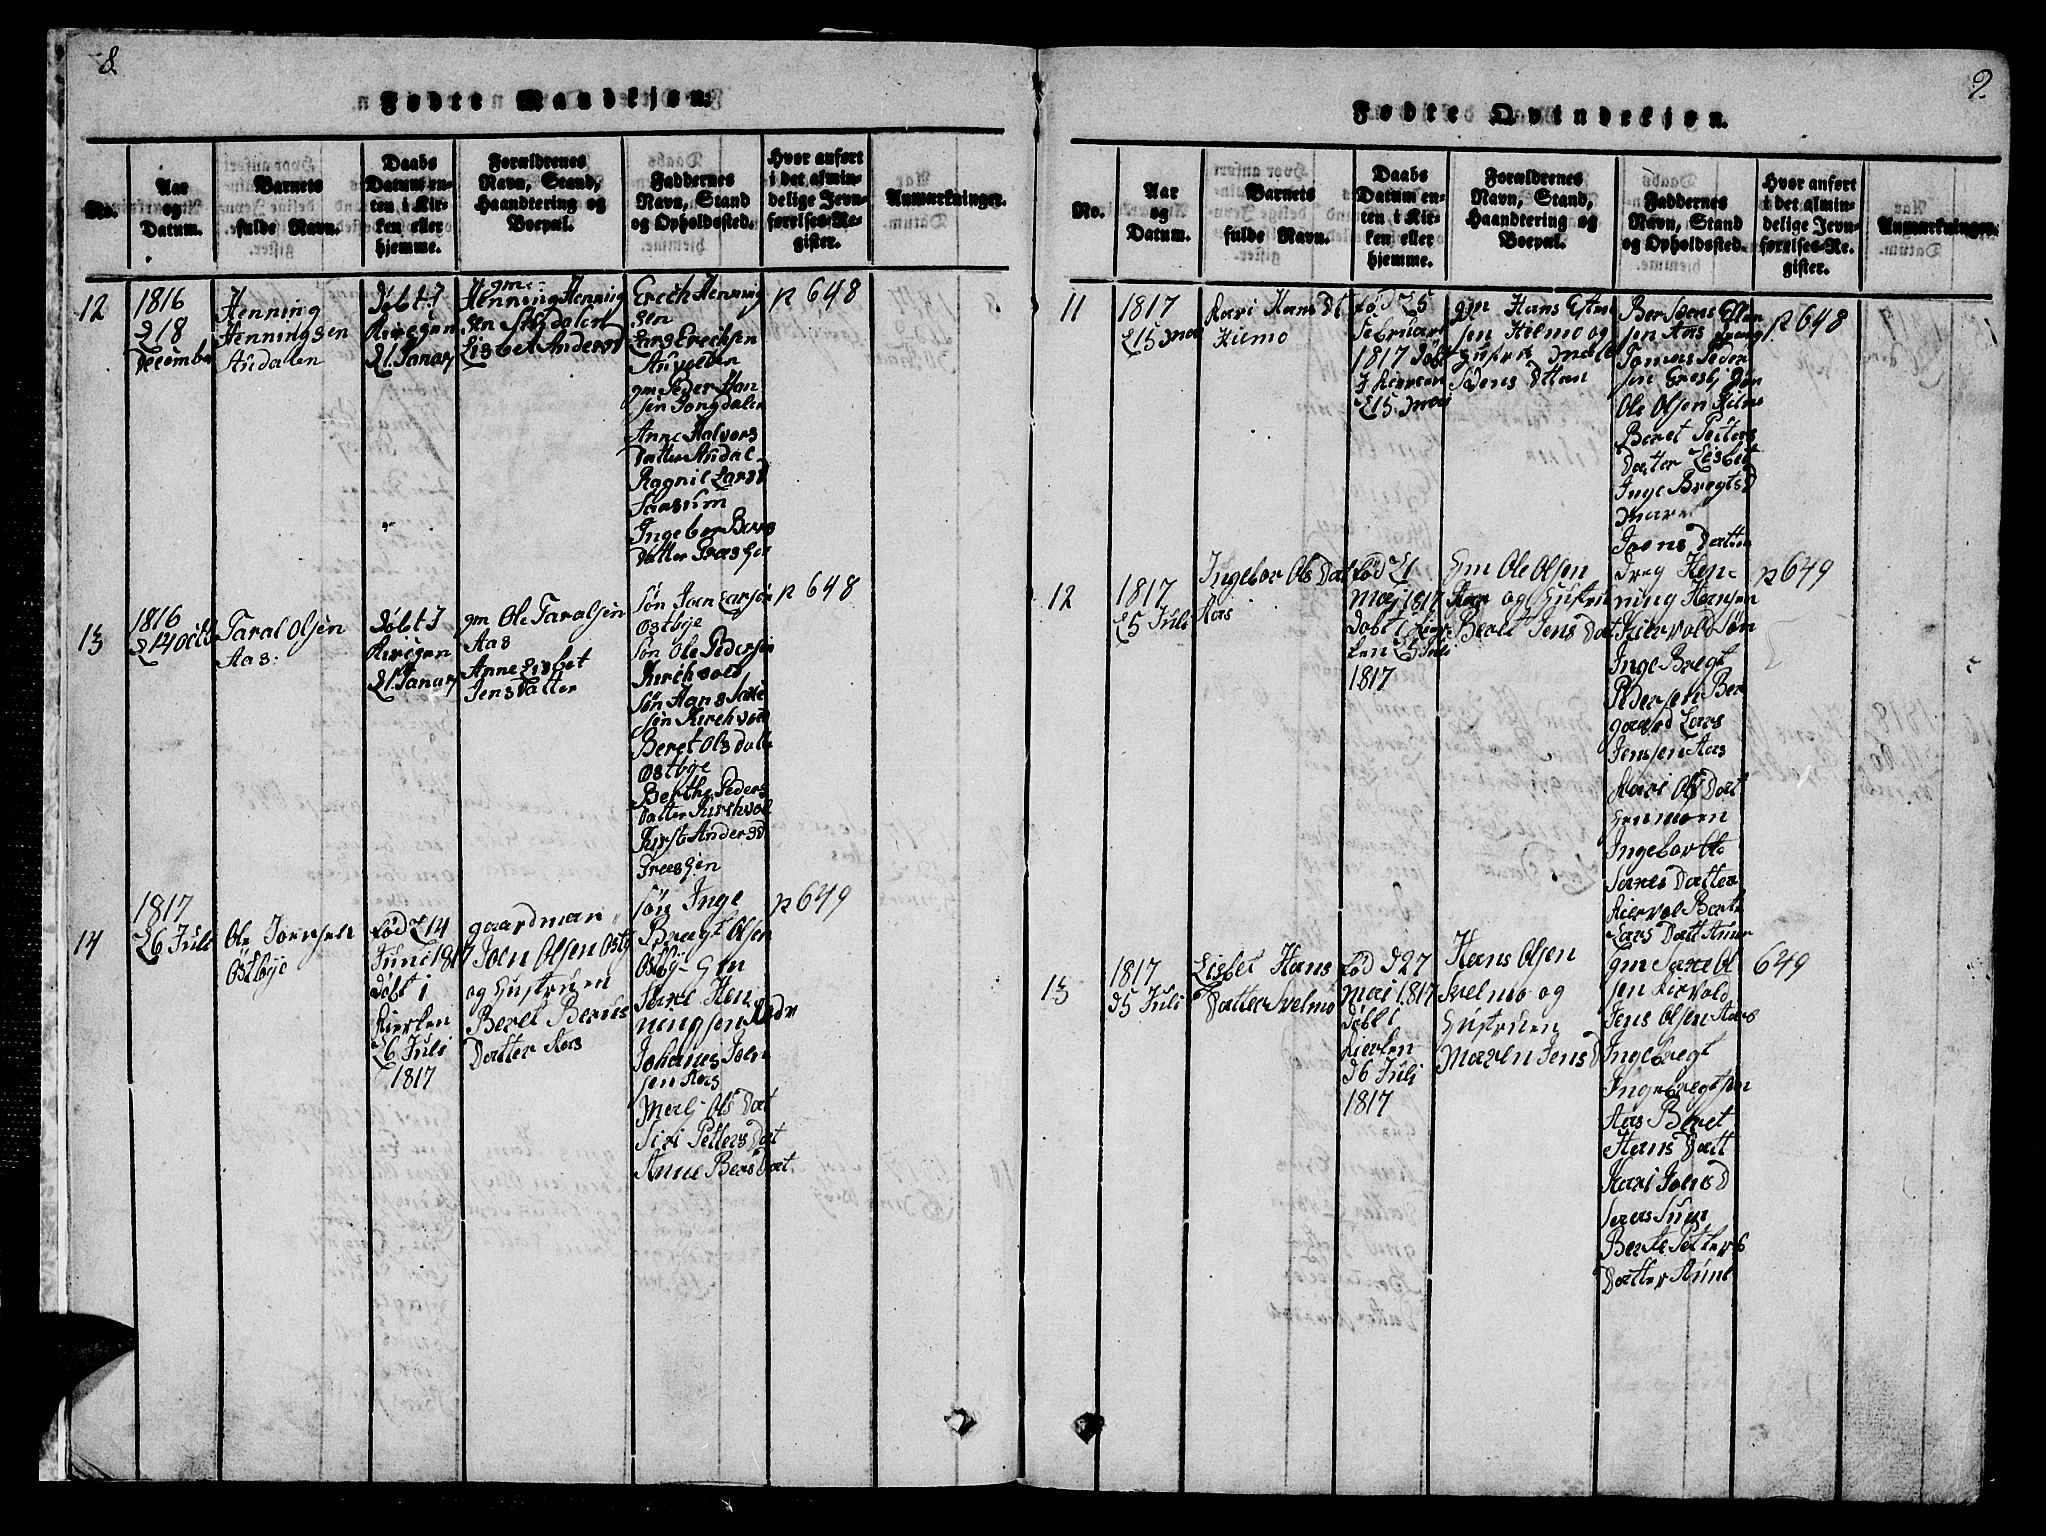 8
Fødte Mandkjøn.
No.
Aar
og
Datum.
Barnets
fulde Navn.
Daabs
Datum en-
ten i Kir-
ken eller
hjemme.
Forældrenes
Navn, Stand,
Haandtering og
Boepæl.
Faddernes
Navn, Stand
og Opholdssted.
Hvor anført
i det almin-
delige Jevn-
førelses-Re-
gister.
Anmærkninger.
12
1816
D 18
December
Henning
Henningsen
Audalen
Døbt I
Kiregen
D 1. Janary
gm
Henning Henning
sen
Lisbet Andersd
Erich Henning
sen
Lars Erichsen
gm Peder Han
sen Jongdalen
Anne Halvors
Datter Audal
Ragnil Larsd
Ingebor Bers
Datter
p 648
13
1816
D 14 octb
Taral Olsen
Aas:
Døbt I
Kirigen
D 1. Janary
gm Ole Taralsen
Aas
Anne Lisbet
Jens Datter
Søn Joen Larsøn
Ostbye
Søn Ole Pedersen
Kirchvold
Søn Hans Saxe
sen Kirchvold
Beret Ols datt
Ostbye
Berthe Peders
Datter Kirchvol
Kirst Anders D
p 648
14
1817
D 6 Juli
Ole Joensen
Østbye
Fød D 14
Juni 1817
Døbt i
Kierken
D 6 Juli
1817
gaardman
Joen Olsen Ostby
og Hustruen
Beret Berns
Datter Aas
Søn Inge
Bregt Olsen
Ostby Gm
Saxe Hen
ningsen
Johanes Joen
sen Aas
Mali Ols Dat
Siri Petters Dat
Anne Bers Dat
p 649
9.
Fødte Qvindekjøn.
No.
Aar
og
Datum.
Barnets
fulde Navn.
Daabs
Datum en-
ten i Kir-
ken eller
hjemme.
Forældrenes
Navn, Stand,
Haandtering og
Boepæl.
Faddernes
Navn, Stand
og Opholdssted.
Hvor anført
i det almin-
delige Jevn-
førelses-Re-
gister.
Anmærkninger.
11
1817
D 15 Mai
Kari Hans Dt
Kilmo
Fød D 5
Februari
1817 Døbt
I Kierken
D 15 Mai
gm Hans Esten
sen Kilmo og
Hustru Mali
Joens Datter
Esten
sen Aas
Tomas Peder
sen
Ole Olsen Kilmo
Beret Peters
Datter Lisbet
Inge Bregts D
Mare
Joens Datter
p. 648
12
1817
D 5 Juli
Ingebor Ols Dat
Aas
Fød D 1
Maj 1817
Døbt i Kier
ken D 5 Juli
1817
Gm Ole Olsen
Aas og Hustru
Beret Jens Dat
Dreg Hen
ning Hansen
Kiervold Søn
Inge Bregt
Pedersen Ber
gaard Lars
Jensen Aas
Kari Ols Dat
Ingebor
Saxes Datter
Kiervol Berte
Lars Datt Aune
p 649
13
1817
D 5 Juli
Lisbet Hans
Datter Svelmo
Fød D 27
Mai 1817
Døbt i
Kierken
D 6 Juli
1817
Hans Olsen
Svelmo og
Hustruen
Maren Jens D
gm Saxe Ol
sen Kirvold
Jens Olsen Aas
Ingebregt
Ingebregtsen
Aas Beret
Hans Datt
Kari Joens D
Berte Petters
Datter Aune
649